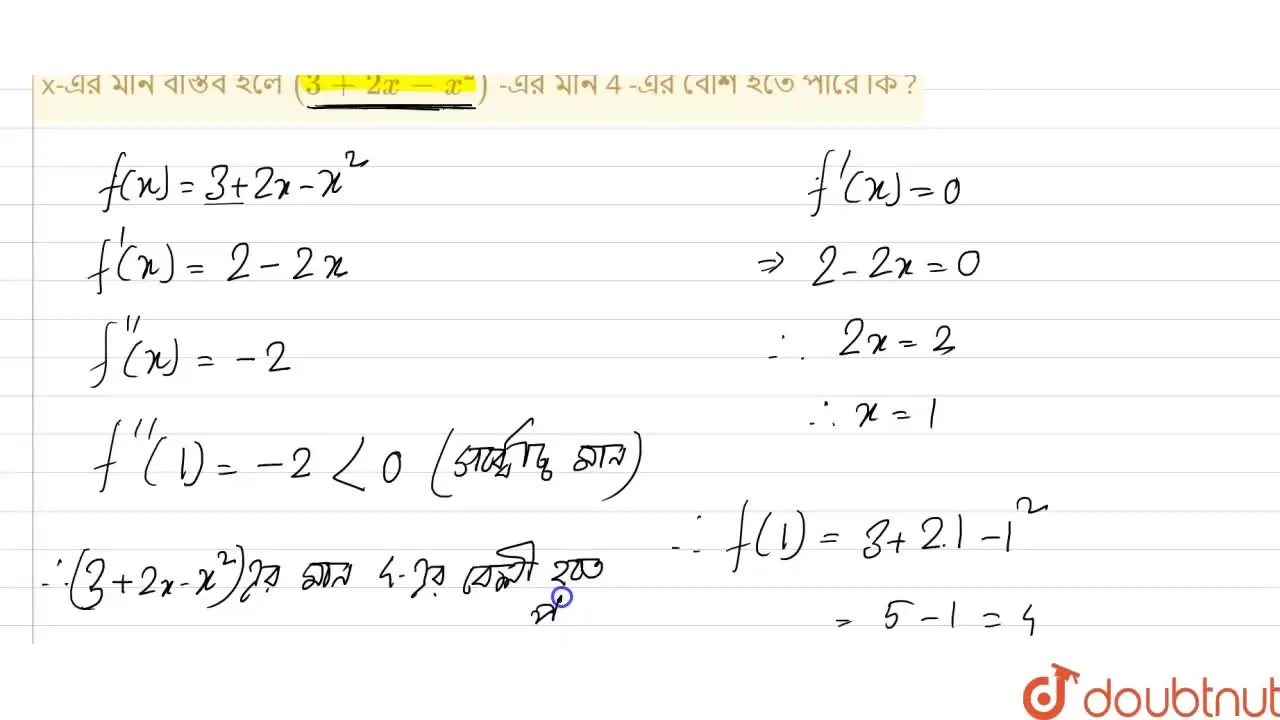 x-এর মান বাস্তব হলে (3 + 2x − x²) -এর মান 4 -এর বেশি হতে পারে কি ?
f(x) = 3+2x-x²
f'(x) = 2-2x
f''(x) = -2
f''(1) = -2 < 0 (সর্বোচ্চ মান)
∴ (3+2x-x²) এর মান 4-এর বেশী হতে
প
f'(x) = 0
⇒ 2-2x = 0
∴ 2x = 2
∴ x = 1
∴ f(1) = 3+2.1-1²
= 5-1 = 4
doubtnut